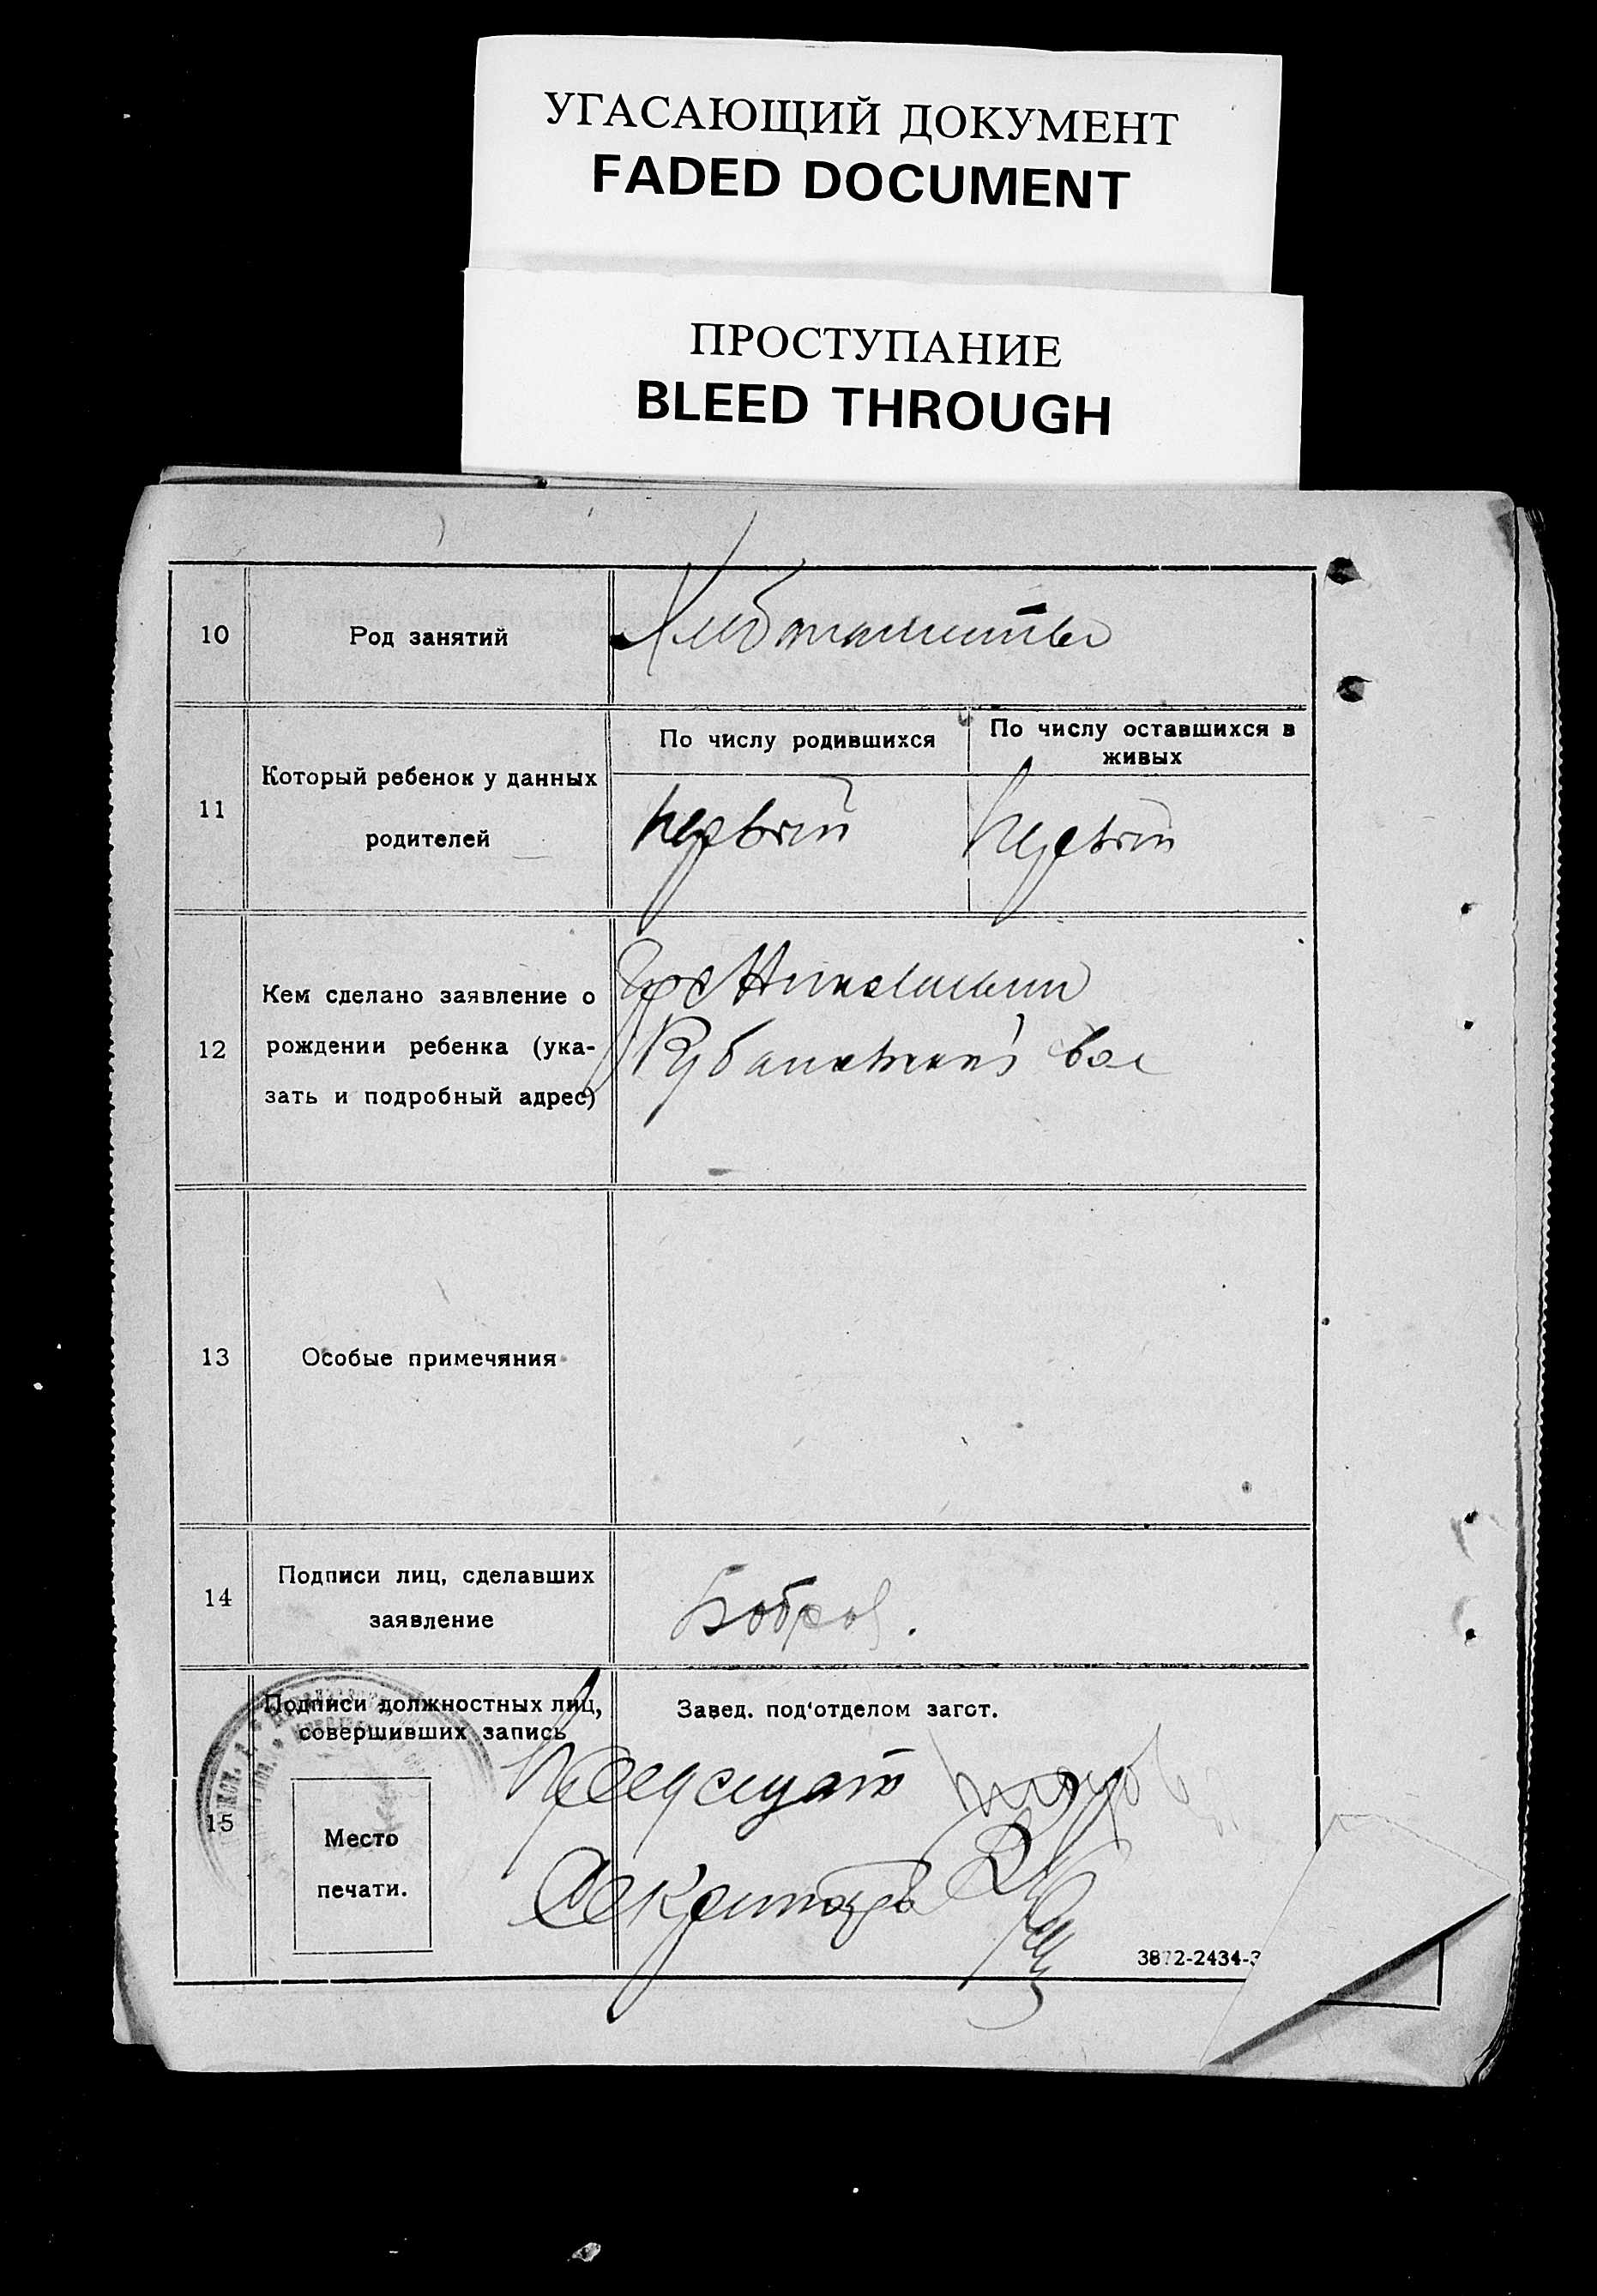 УГАСАЮЩИЙ ДОКУМЕНТ
FADED DOCUMENT
ПРОСТУПАНИЕ
BLEED THROUGH
10
Род занятий
Хлебопашество
11
Который ребенок у данных
родителей
По числу родившихся
По числу оставшихся в
живых
первый
первый
12
Кем сделано заявление о
рождении ребенка (ука-
зать и подробный адрес)
вол
13
Особые примечяния
14
Подписи лиц, сделавших
заявление
Бобров.
15
Подписи должностных лиц,
совершивших запись
Место
печати.
Завед. под'отделом загст.
Председат
Секретарь
3872-2434-3